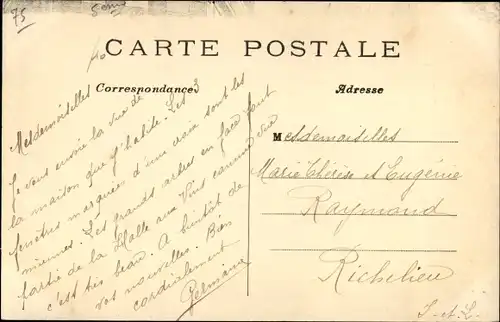 75
5eme
CARTE POSTALE
Correspondance
Adresse
Mesdemoiselles
Je vous envoie la vue de
la maison que j'habite. Les 3
fenêtres marquées d'une croix sont les
miennes. Les grands arbres en face font
partie de la Halle aux Vins comme vue
c'est très beau. A bientôt de
vos nouvelles. Bien
cordialement
Germaine
Mesdemoiselles
Marie Thérèse et Eugénie
Raymond
Richelieu
I-et-L-